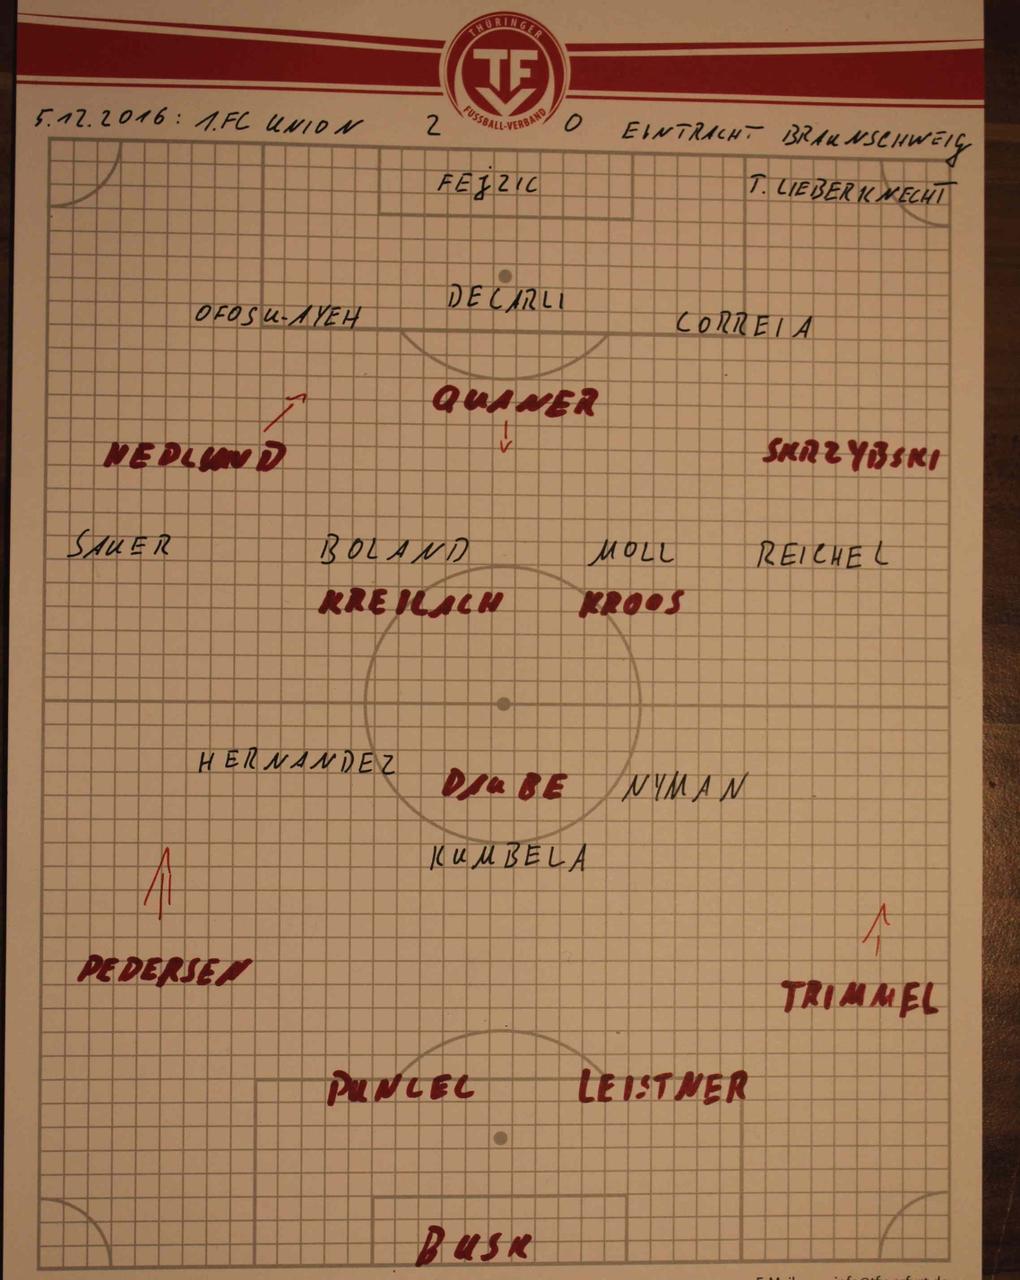 THÜRINGER
FUSSBALL-VERBAND
5.12.2016: 1.FC UNION 2 0 EINTRACHT BRAUNSCHWEIG
FEJZIC T. LIEBERKNECHT
DECARLI
OFOSU-AYEH CORREIA
QUANER
HEDLUND SKRZYBSKI
SAUER BOLAND MOLL REICHEL
KREILACH KROOS
HERNANDEZ DAUBE NYMAN
KUMBELA
PEDERSEN
TRIMMEL
PUNCEC LEISTNER
BUSK